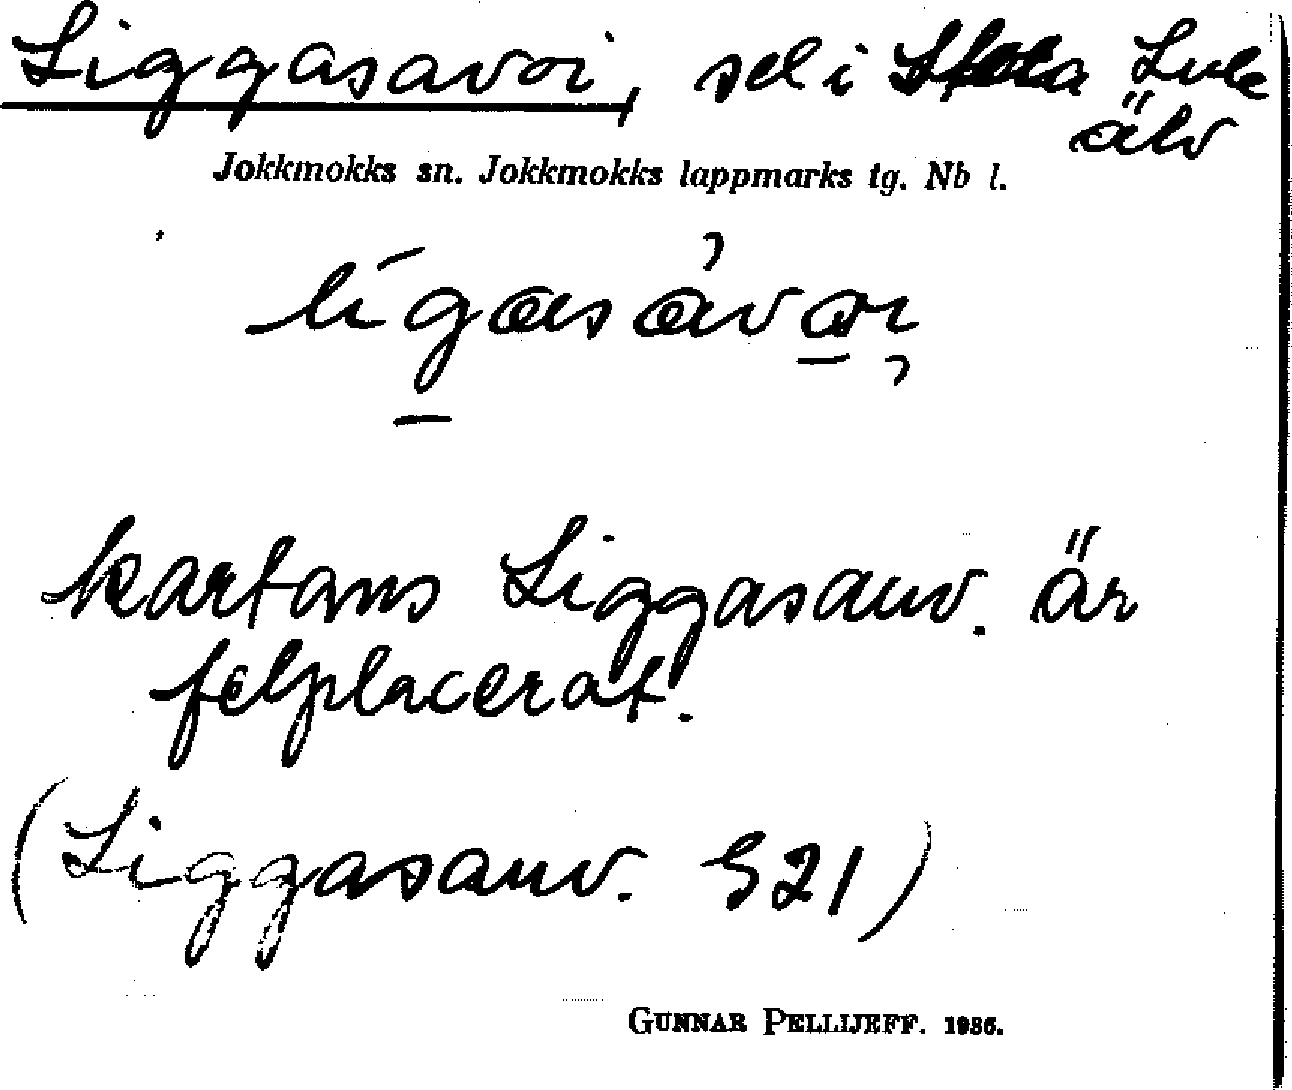 Liggasavoi, sel i Stora Lule
älv
Jokkmokks sn. Jokkmokks lappmarks tg. Nb l.
kartans Liggasauv. är
felplacerat.
(Liggasauv. S21)
GUNNAR PELLIJEFF. 1936.